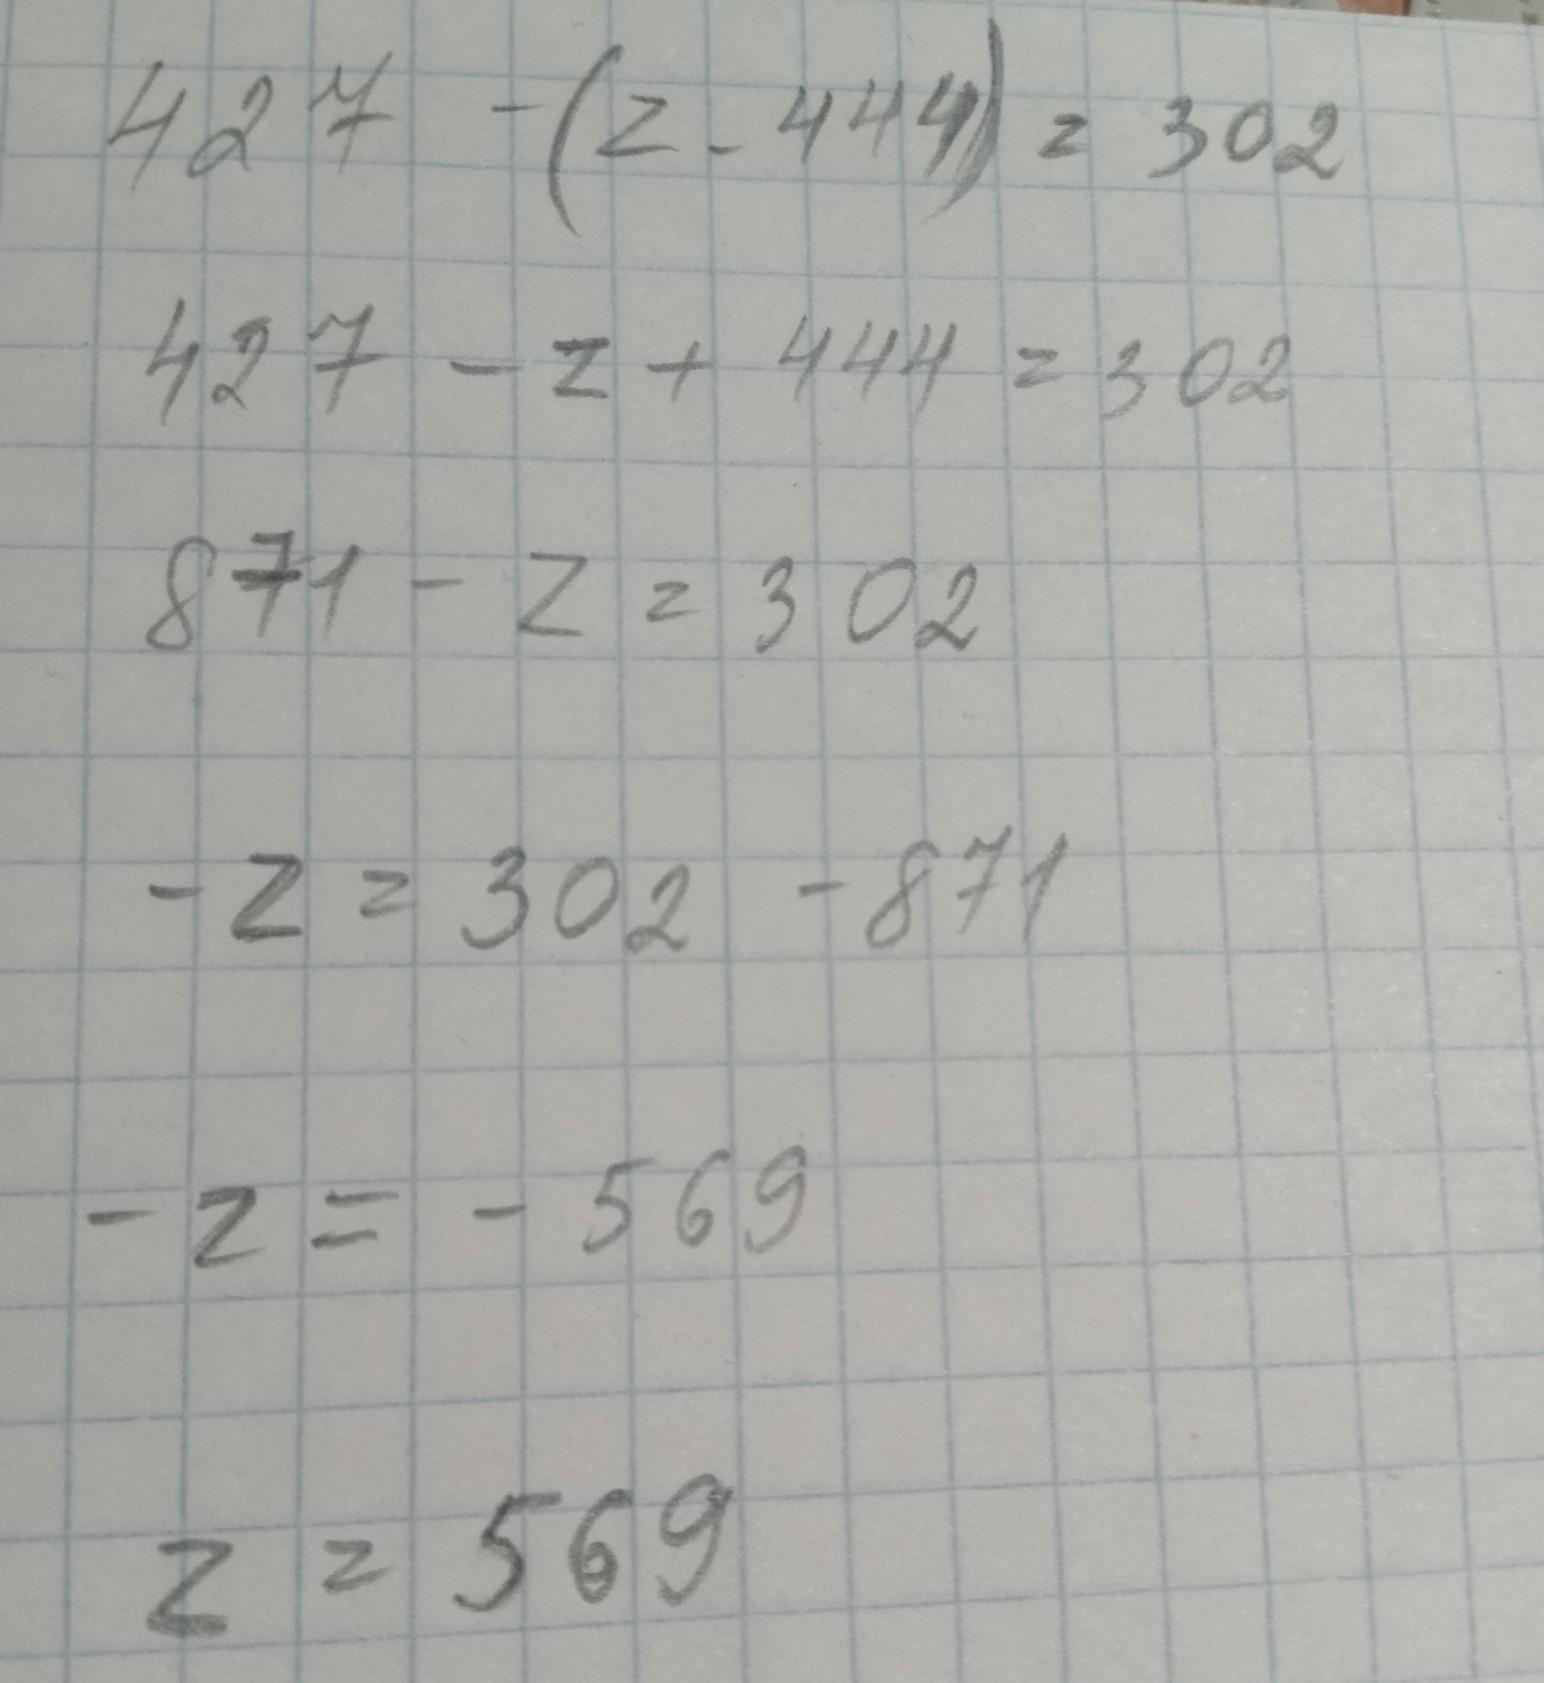 427 - (z - 444) = 302
427 - z + 444 = 302
871 - z = 302
- z = 302 - 871
- z = - 569
z = 569